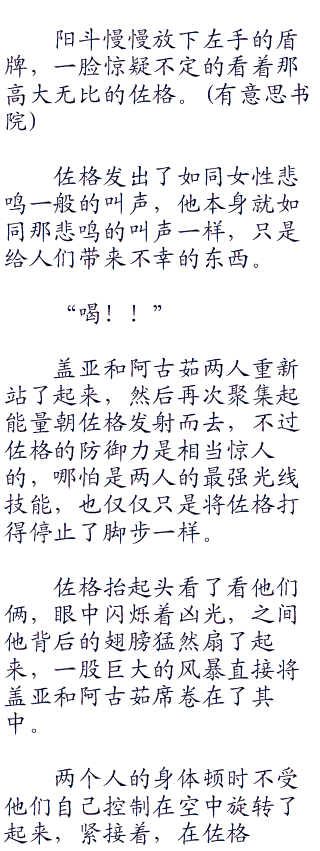 阳斗慢慢放下左手的盾
牌，一脸惊疑不定的看着那
高大无比的佐格。(有意思书
院)
佐格发出了如同女性悲
鸣一般的叫声，他本身就如
同那悲鸣的叫声一样，只是
给人们带来不幸的东西。
“喝！！”
盖亚和阿古茹两人重新
站了起来，然后再次聚集起
能量朝佐格发射而去，不过
佐格的防御力是相当惊人
的，哪怕是两人的最强光线
技能，也仅仅只是将佐格打
得停止了脚步一样。
佐格抬起头看了看他们
俩，眼中闪烁着凶光，之间
他背后的翅膀猛然扇了起
来，一股巨大的风暴直接将
盖亚和阿古茹席卷在了其
中。
两个人的身体顿时不受
他们自己控制在空中旋转了
起来，紧接着，在佐格